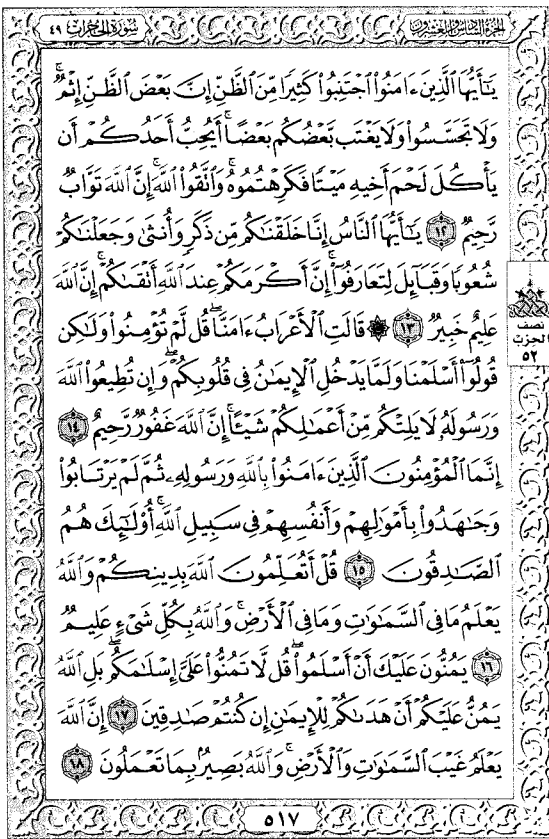 الجزء السادس والعشرون
سورة الحجرات ٤٩
يَـٰٓأَيُّهَا ٱلَّذِينَ ءَامَنُوا۟ ٱجْتَنِبُوا۟ كَثِيرًا مِّنَ ٱلظَّنِّ إِنَّ بَعْضَ ٱلظَّنِّ إِثْمٌ ۖ
وَلَا تَجَسَّسُوا۟ وَلَا يَغْتَب بَّعْضُكُم بَعْضًا ۚ أَيُحِبُّ أَحَدُكُمْ أَن
يَأْكُلَ لَحْمَ أَخِيهِ مَيْتًا فَكَرِهْتُمُوهُ ۚ وَٱتَّقُوا۟ ٱللَّهَ ۚ إِنَّ ٱللَّهَ تَوَّابٌ
رَّحِيمٌ ١٢ يَـٰٓأَيُّهَا ٱلنَّاسُ إِنَّا خَلَقْنَـٰكُم مِّن ذَكَرٍ وَأُنثَىٰ وَجَعَلْنَـٰكُمْ
شُعُوبًا وَقَبَآئِلَ لِتَعَارَفُوٓا۟ ۚ إِنَّ أَكْرَمَكُمْ عِندَ ٱللَّهِ أَتْقَىٰكُمْ ۚ إِنَّ ٱللَّهَ
عَلِيمٌ خَبِيرٌ ١٣ ۞ قَالَتِ ٱلْأَعْرَابُ ءَامَنَّا ۖ قُل لَّمْ تُؤْمِنُوا۟ وَلَـٰكِن
قُولُوٓا۟ أَسْلَمْنَا وَلَمَّا يَدْخُلِ ٱلْإِيمَـٰنُ فِى قُلُوبِكُمْ ۖ وَإِن تُطِيعُوا۟ ٱللَّهَ
وَرَسُولَهُۥ لَا يَلِتْكُم مِّنْ أَعْمَـٰلِكُمْ شَيْـًٔا ۚ إِنَّ ٱللَّهَ غَفُورٌ رَّحِيمٌ ١٤
إِنَّمَا ٱلْمُؤْمِنُونَ ٱلَّذِينَ ءَامَنُوا۟ بِٱللَّهِ وَرَسُولِهِۦ ثُمَّ لَمْ يَرْتَابُوا۟
وَجَـٰهَدُوا۟ بِأَمْوَٰلِهِمْ وَأَنفُسِهِمْ فِى سَبِيلِ ٱللَّهِ ۚ أُو۟لَـٰٓئِكَ هُمُ
ٱلصَّـٰدِقُونَ ١٥ قُلْ أَتُعَلِّمُونَ ٱللَّهَ بِدِينِكُمْ وَٱللَّهُ
يَعْلَمُ مَا فِى ٱلسَّمَـٰوَٰتِ وَمَا فِى ٱلْأَرْضِ ۚ وَٱللَّهُ بِكُلِّ شَىْءٍ عَلِيمٌ
١٦ يَمُنُّونَ عَلَيْكَ أَنْ أَسْلَمُوا۟ ۖ قُل لَّا تَمُنُّوا۟ عَلَىَّ إِسْلَـٰمَكُم ۖ بَلِ ٱللَّهُ
يَمُنُّ عَلَيْكُمْ أَنْ هَدَىٰكُمْ لِلْإِيمَـٰنِ إِن كُنتُمْ صَـٰدِقِينَ ١٧ إِنَّ ٱللَّهَ
يَعْلَمُ غَيْبَ ٱلسَّمَـٰوَٰتِ وَٱلْأَرْضِ ۚ وَٱللَّهُ بَصِيرٌۢ بِمَا تَعْمَلُونَ ١٨
نصف
الحزب
٥٢
٥١٧